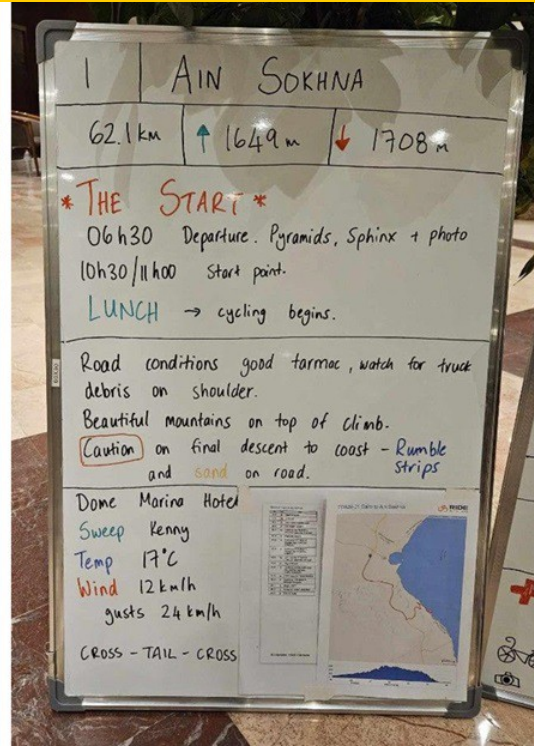 1 AIN SOKHNA
62.1 km ↑ 1649 m ↓ 1708 m
* THE START *
06h30 Departure. Pyramids, Sphinx + photo
10h30/11h00 Start point.
LUNCH → cycling begins.
Road conditions good tarmac, watch for truck
debris on shoulder.
Beautiful mountains on top of climb.
Caution on final descent to coast - Rumble
strips
and sand on road.
Dome Marina Hotel
Sweep Kenny
Temp 17°C
Wind 12 km/h
gusts 24 km/h
CROSS - TAIL - CROSS
RIDE